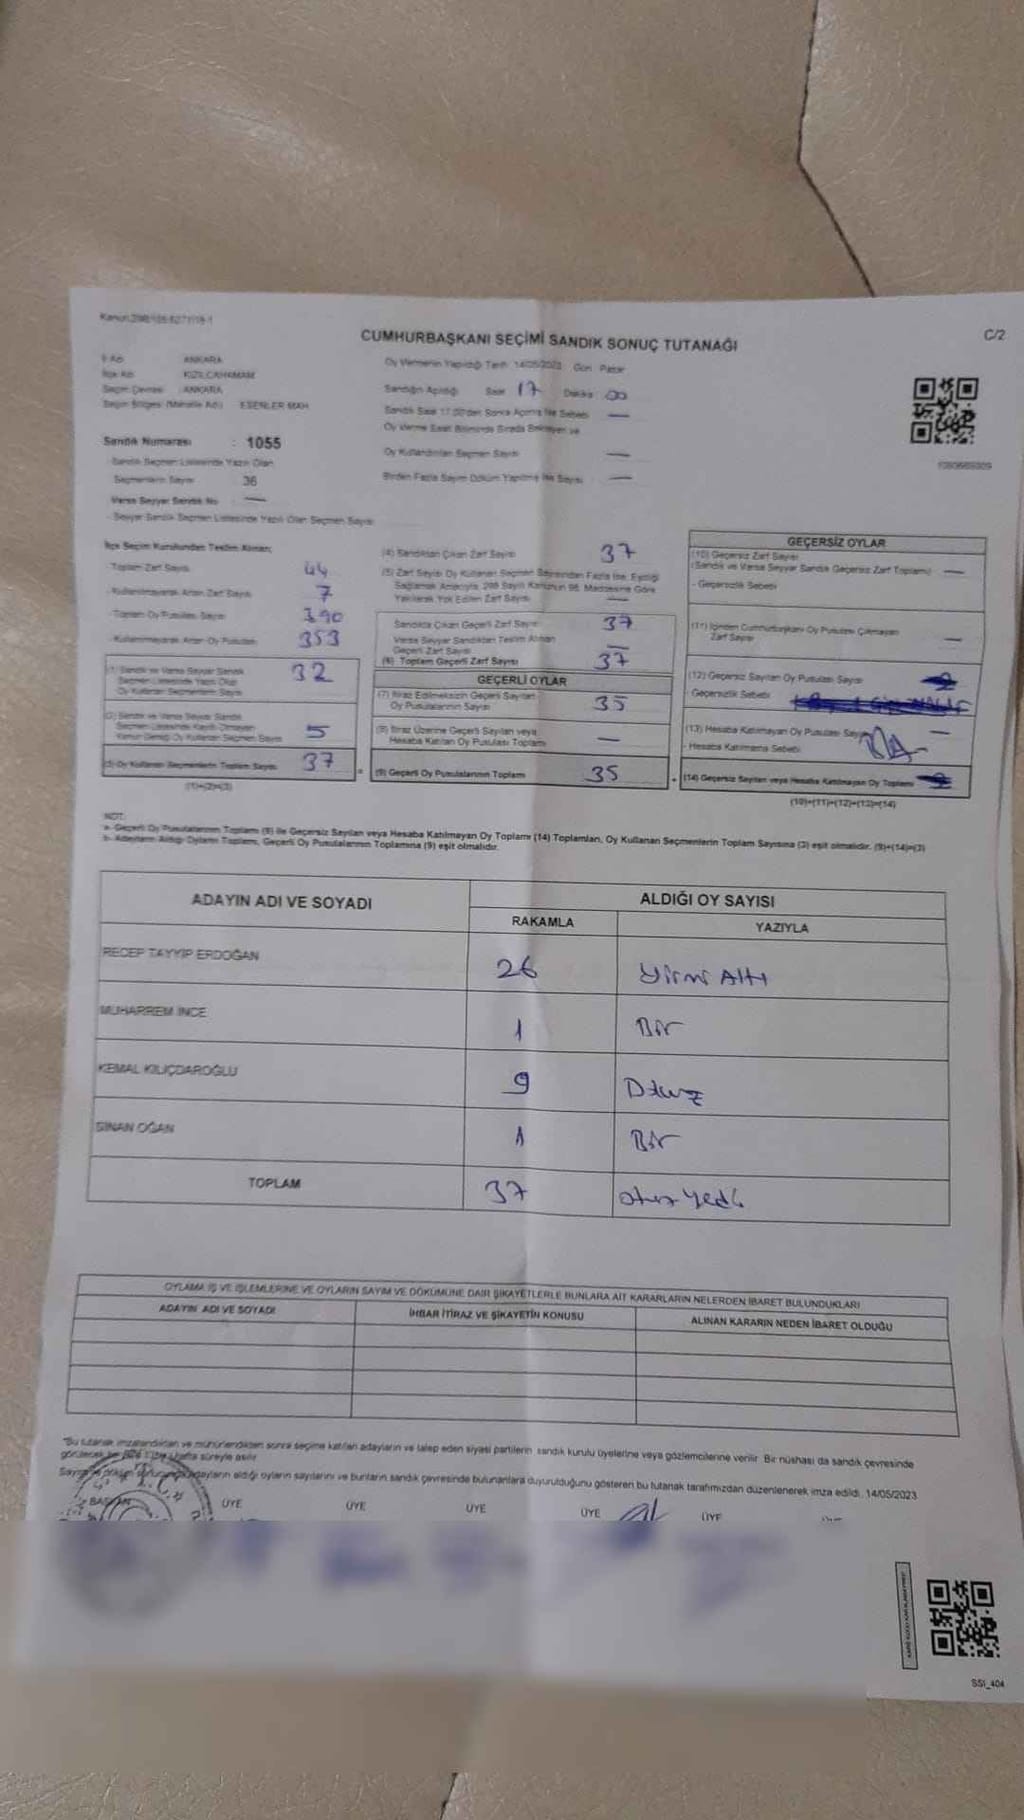 Kanun:298/
CUMHURBAŞKANI SEÇİMİ SANDIK SONUÇ TUTANAĞI
C/2
İl Adı ANKARA
İlçe Adı KIZILCAHAMAM
Seçim Çevresi ANKARA
Seçim Bölgesi (Mahalle Adı) ESENLER MAH
Sandık Numarası : 1055
Sandık Seçmen Listesinde Yazılı Olan
Seçmenlerin Sayısı 36
Varsa Seyyar Sandık No —
Seyyar Sandık Seçmen Listesinde Yazılı Olan Seçmen Sayısı
Oy Vermenin Yapıldığı Tarih 14/05/2023 Gün Pazar
Sandığın Açıldığı Saat 17 Dakika 00
Sandık Saat 17.00'den Sonra Açılmış İse Sebebi —
Oy Verme Saati Bitiminde Sırada Bekleyen ve
Oy Kullandırılan Seçmen Sayısı —
Birden Fazla Sayım Döküm Yapılmış İse Sayısı —
İlçe Seçim Kurulundan Teslim Alınan;
Toplam Zarf Sayısı 44
Kullanılmayarak Artan Zarf Sayısı 7
Toplam Oy Pusulası Sayısı 390
Kullanılmayarak Artan Oy Pusulası 353
(1) Sandık ve Varsa Seyyar Sandık
Seçmen Listesinde Yazılı Olup
Oy Kullanan Seçmenlerin Sayısı 32
(2) Sandık ve Varsa Seyyar Sandık
Seçmen Listesinde Kayıtlı Olmayan
Kanun Gereği Oy Kullanan Seçmen Sayısı 5
(3) Oy Kullanan Seçmenlerin Toplam Sayısı 37
(1)+(2)=(3)
(4) Sandıktan Çıkan Zarf Sayısı 37
(5) Zarf Sayısı Oy Kullanan Seçmen Sayısından Fazla İse, Eşitliği
Sağlamak Amacıyla, 298 Sayılı Kanunun 98. Maddesine Göre
Yakılarak Yok Edilen Zarf Sayısı —
Sandıkta Çıkan Geçerli Zarf Sayısı 37
Varsa Seyyar Sandıktan Teslim Alınan
Geçerli Zarf Sayısı —
(6) Toplam Geçerli Zarf Sayısı 37
GEÇERLİ OYLAR
(7) İtiraz Edilmeksizin Geçerli Sayılan
Oy Pusulalarının Sayısı 35
(8) İtiraz Üzerine Geçerli Sayılan veya
Hesaba Katılan Oy Pusulası Toplamı —
(9) Geçerli Oy Pusulalarının Toplamı 35
GEÇERSİZ OYLAR
(10) Geçersiz Zarf Sayısı
(Sandık ve Varsa Seyyar Sandık Geçersiz Zarf Toplamı) —
- Geçersizlik Sebebi
(11) İçinden Cumhurbaşkanı Oy Pusulası Çıkmayan
Zarf Sayısı —
(12) Geçersiz Sayılan Oy Pusulası Sayısı
Geçersizlik Sebebi
(13) Hesaba Katılmayan Oy Pusulası Sayısı —
- Hesaba Katılmama Sebebi
(14) Geçersiz Sayılan veya Hesaba Katılmayan Oy Toplamı
(10)+(11)+(12)+(13)=(14)
NOT:
a- Geçerli Oy Pusulalarının Toplamı (9) ile Geçersiz Sayılan veya Hesaba Katılmayan Oy Toplamı (14) Toplamları, Oy Kullanan Seçmenlerin Toplam Sayısına (3) eşit olmalıdır. (9)+(14)=(3)
b- Adayların Aldığı Oyların Toplamı, Geçerli Oy Pusulalarının Toplamına (9) eşit olmalıdır.
ADAYIN ADI VE SOYADI ALDIĞI OY SAYISI
RAKAMLA YAZIYLA
RECEP TAYYİP ERDOĞAN 26 Yirmi Altı
MUHARREM İNCE 1 Bir
KEMAL KILIÇDAROĞLU 9 Dokuz
SİNAN OĞAN 1 Bir
TOPLAM 37 otuz yedi
OYLAMA İŞ VE İŞLEMLERİNE VE OYLARIN SAYIM VE DÖKÜMÜNE DAİR ŞİKAYETLERLE BUNLARA AİT KARARLARIN NELERDEN İBARET BULUNDUKLARI
ADAYIN ADI VE SOYADI İHBAR İTİRAZ VE ŞİKAYETİN KONUSU ALINAN KARARIN NEDEN İBARET OLDUĞU
"Bu tutanak imzalandıktan ve mühürlendikten sonra seçime katılan adayların ve talep eden siyasi partilerin sandık kurulu üyelerine veya gözlemcilerine verilir. Bir nüshası da sandık çevresinde
görülecek bir yere 1 hafta süreyle asılır
Sayım ve döküm sonucu adayların aldığı oyların sayılarını ve bunların sandık çevresinde bulunanlara duyurulduğunu gösteren bu tutanak tarafımızdan düzenlenerek imza edildi. 14/05/2023
T.C.
BAŞKAN ÜYE ÜYE ÜYE ÜYE ÜYE
SSI_404